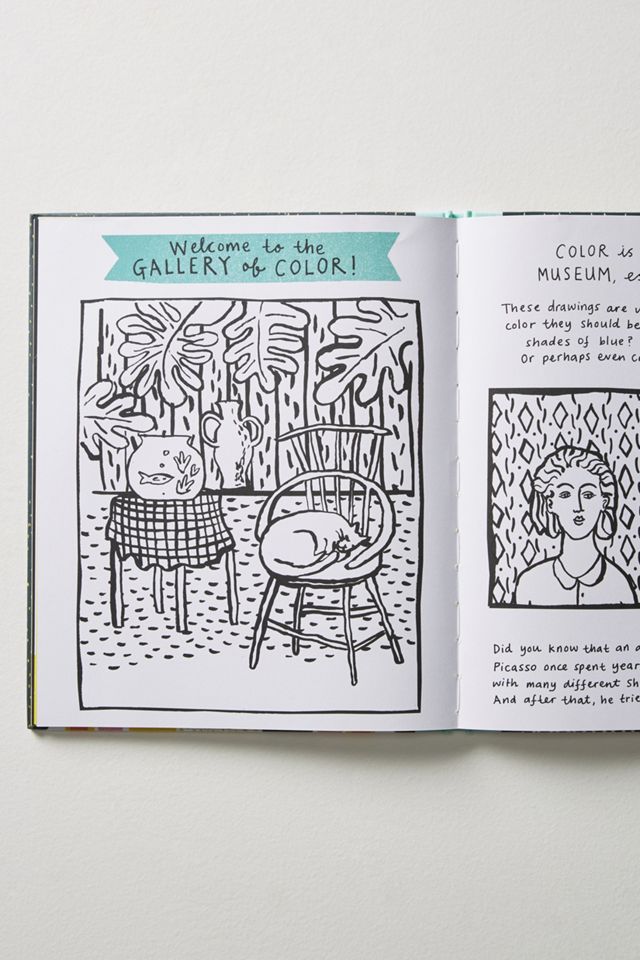 Welcome to the
GALLERY of COLOR!
COLOR is
MUSEUM,
These drawings are
color they should be
shades of blue?
Or perhaps even
Did you know that an
Picasso once spent
with many different
And after that, he